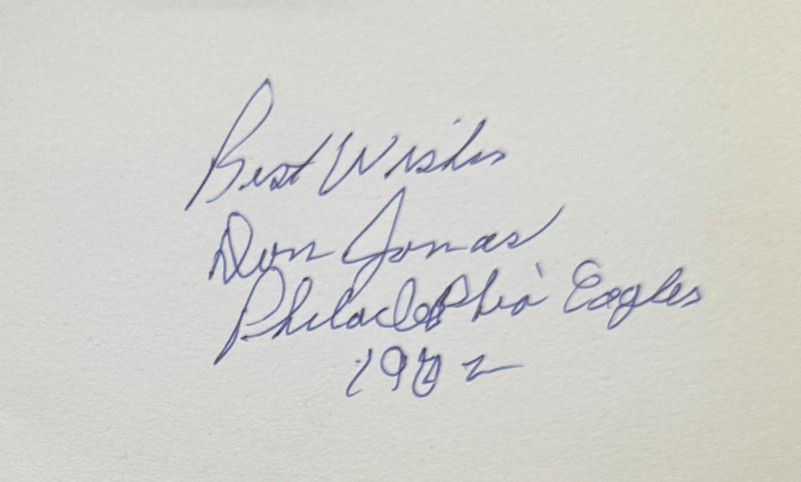 Best Wishes
Don Jonas
Philadelphia Eagles